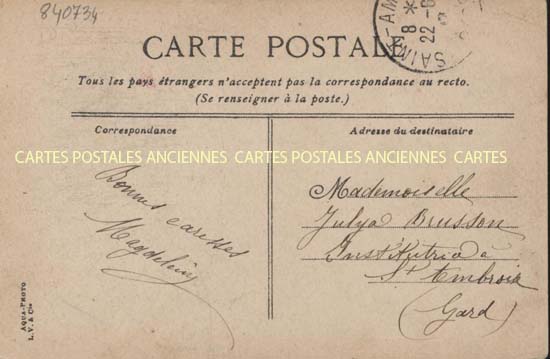 840734
CARTE POSTALE
SAINT-AM
8 *
22 -6
Tous les pays étrangers n'acceptent pas la correspondance au recto.
(Se renseigner à la poste.)
Correspondance
Adresse du destinataire
CARTES POSTALES ANCIENNES CARTES POSTALES ANCIENNES CARTES
Bonnes caresses
Magdeleine
Mademoiselle
Julya Brusson
Institutrice à
St Ambroix
(Gard)
AQUA-PHOTO
L. V. & Cie